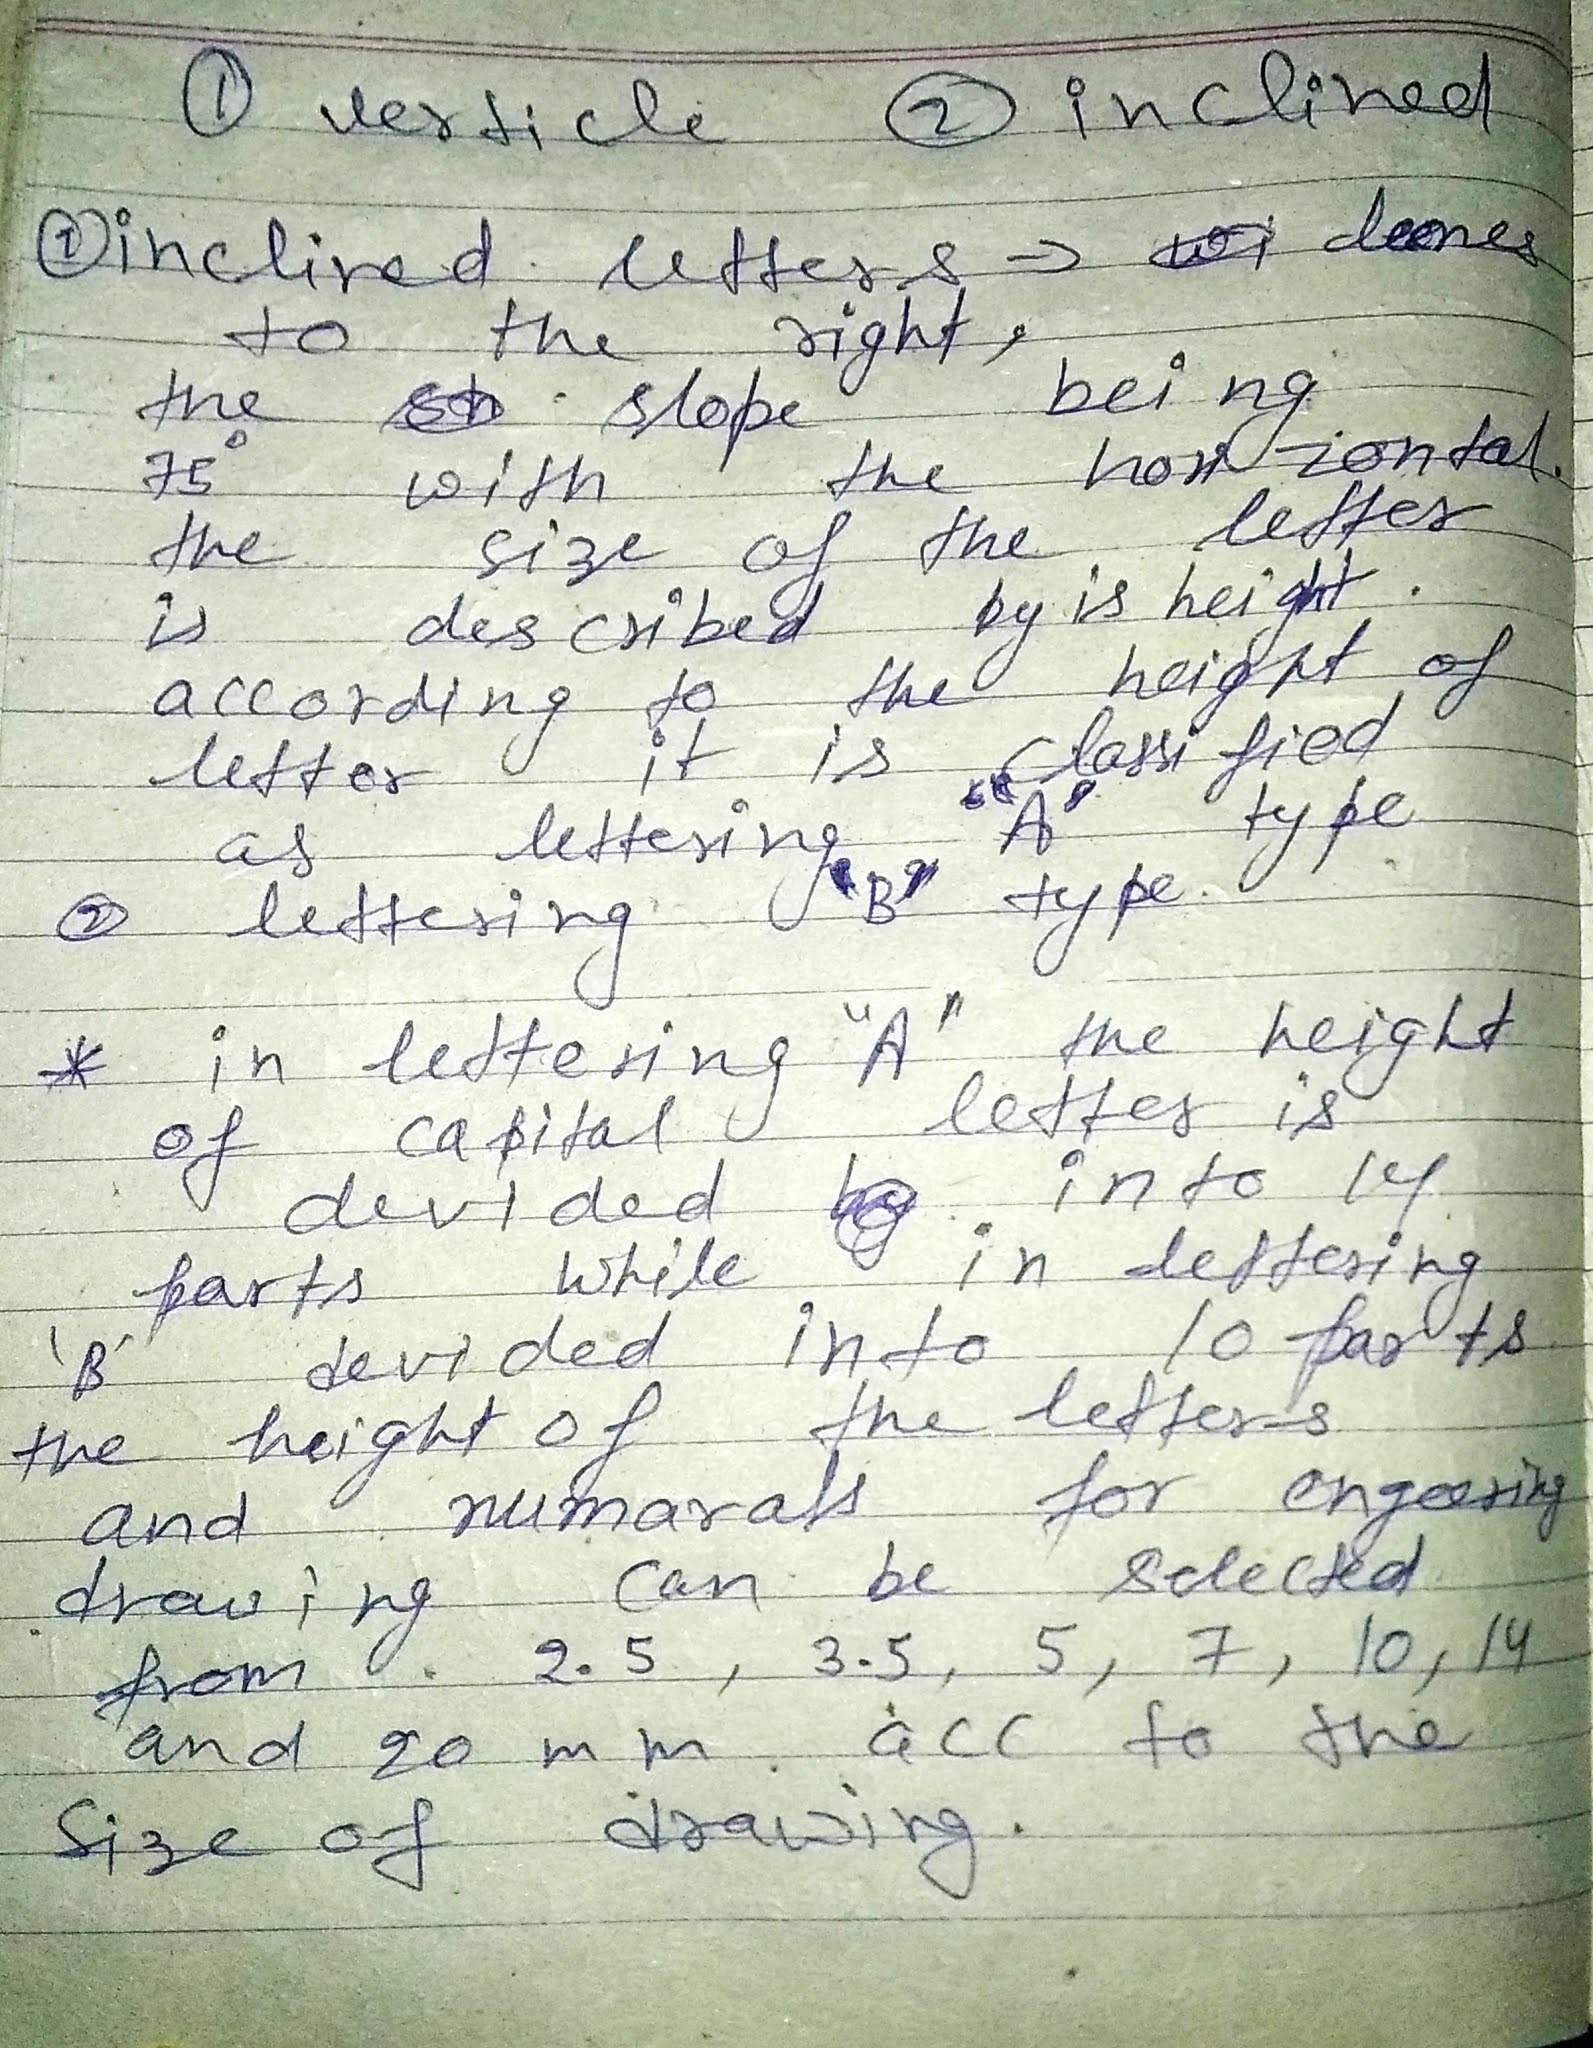 ① verticle ② inclined
① inclined letters → leones
to the right,
the slope being
75° with the horizontal.
the size of the letter
is described by is height.
according to the height of
letter it is classified
as lettering "A" type
② lettering "B" type.
* in lettering "A" the height
of capital letter is
devided into 14
parts while in lettering
'B' devided into 10 parts
the height of the letters
and numarals for engeering
drawing can be selected
from. 2.5, 3.5, 5, 7, 10, 14
and 20 mm. acc to the
Size of drawing.